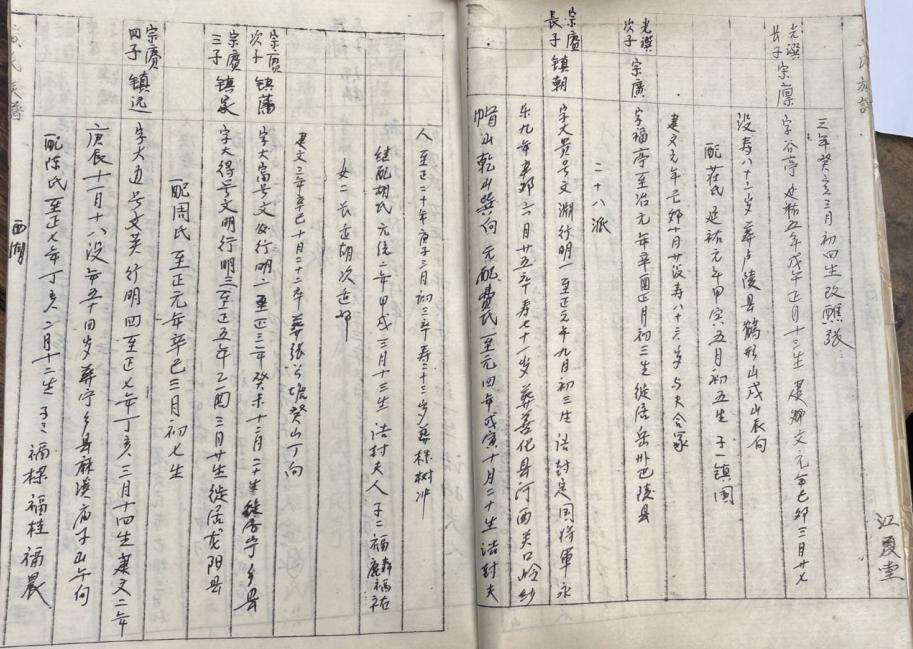 三年癸亥三月初四生 改醮張
光潠長子 宗凛 字谷亭 延祐五年戊午正月十三生 建文元年己卯三月廿七
没寿八十二岁葬卢陵县鹤形山戌山辰向
配莊氏 延祐元年甲寅五月初五生 子一镇国
建文元年己卯十月廿没寿八十六岁 与夫合冢
次子 宗廣 字福亭至治元年辛酉正月初三生徙居岳州巴陵县
二十八派
宗广長子 镇朝 字大贵号文渊行明一至正元年九月初三生 诰封定国将軍 永
乐九年辛卯六月廿五卒寿七十一岁葬善化县河西关口岭纱
帽山乾山巽向 元配费氏至元四年戊寅十月二十生 诰封夫
人 至正二十年庚子三月初三卒寿二十三岁葬株树冲
继配胡氏元统二年甲戌三月十三生 诰封夫人 子二福麟福祐
女二 长适胡次适邹
建文三年辛巳十月二十二卒葬张公塘癸山丁向
次子 镇藩 字大富号文 行明二至正三年癸未十二月二十生徙居宁乡县
三子 镇家 字大得号文明行明三至正五年乙酉三月廿生徙居龙阳县
配周氏 至正元年辛巳三月初七生
四子 镇远 字大 号文英行明四至正七年丁亥三月十四生建文二年
庚辰十一月十八没年五十四岁葬宁乡县麻 庙子山午向
配陈氏至正七年丁亥二月十二生 子三 福棵 福桂 福晨
西湖
江夏堂